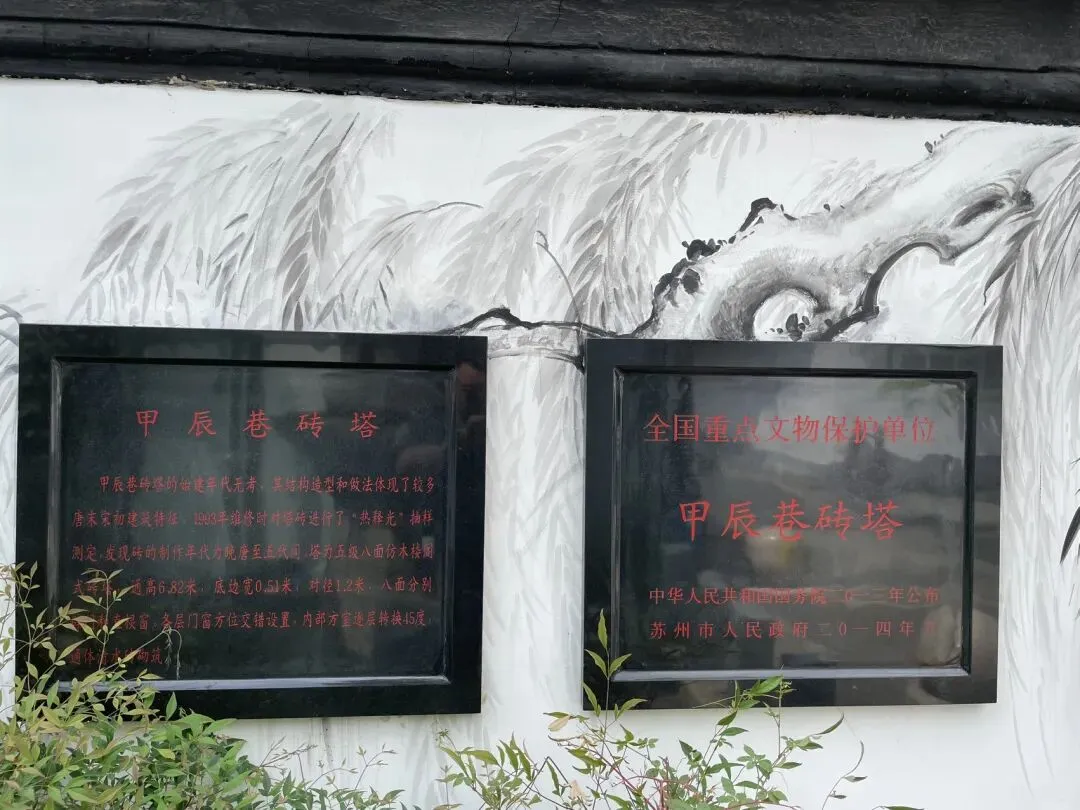 甲辰巷砖塔
甲辰巷砖塔的始建年代无考，其结构造型和做法体现了较多
唐末宋初建筑特征，1993年维修时对塔砖进行了“热释光”抽样
测定，发现砖的制作年代为晚唐至五代间，塔为五级八面仿木楼阁
式砖塔，通高6.82米，底边宽0.51米，对径1.2米，八面分别
窗，各层门窗方位交错设置，内部方室逐层转换45度，
通体
砌筑
全国重点文物保护单位
甲辰巷砖塔
中华人民共和国国务院二〇一三年公布
苏州市人民政府二〇一四年